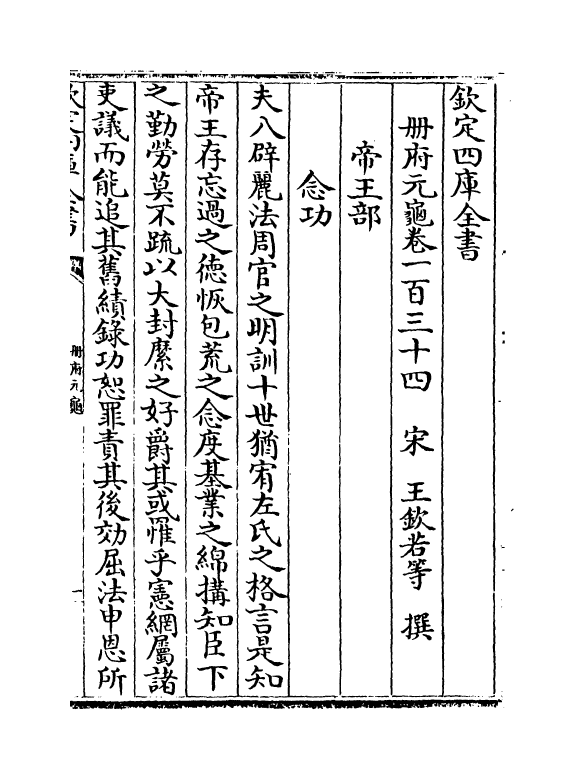 欽定四庫全書
册府元龜卷一百三十四　宋　王欽若等　撰
帝王部
念功
夫八辟麗法周官之明訓十世猶宥左氏之格言是知
帝王存忘過之德恢包荒之念度基業之綿搆知臣下
之勤勞莫不疏以大封縻之好爵其或罹乎憲網屬諸
吏議而能追其舊績錄功恕罪責其後効屈法申恩所
欽定四庫全書
册府元龜
一